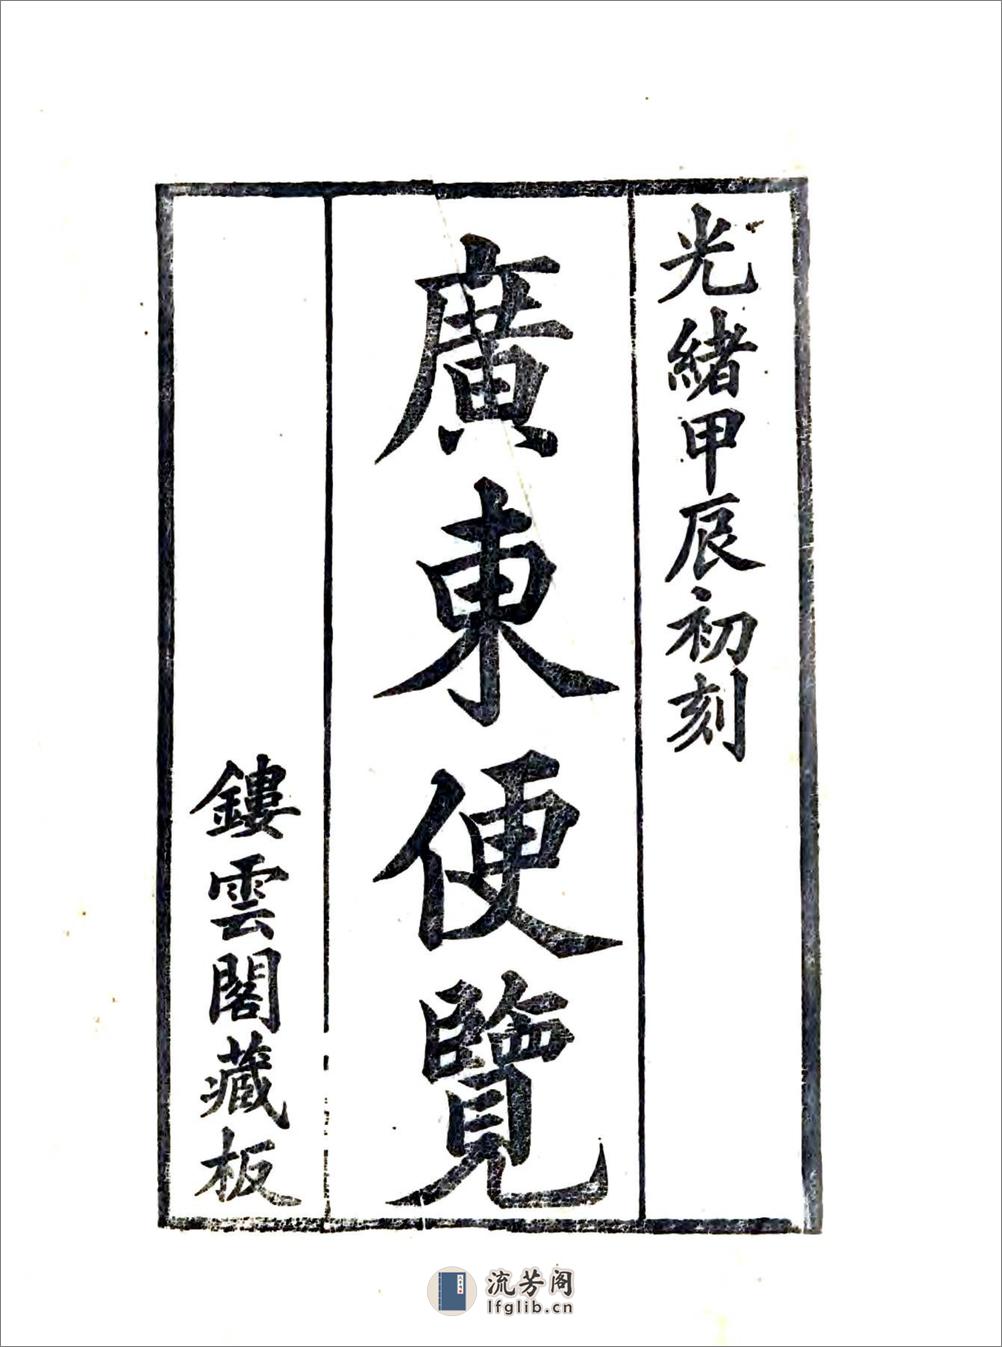 光緒甲辰初刻
廣東便覽
鏤雲閣藏板
流芳阁
lfglib.cn